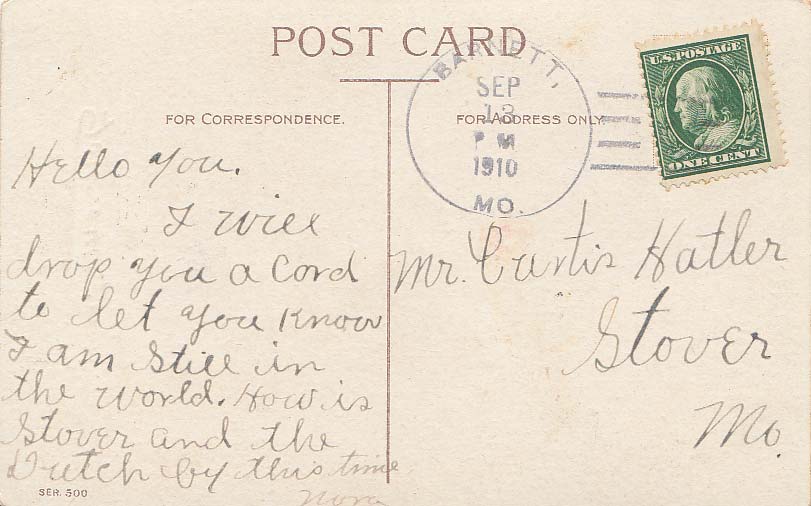 POST CARD
BARNETT,
SEP
13
P M
1910
MO.
U.S. POSTAGE
ONE CENT
FOR CORRESPONDENCE.
FOR ADDRESS ONLY
Hello You.
I will
drop you a Cord
to let you Know
I am Still in
the world. How is
Stover and the
Dutch by this time
Nora
Mr. Curtis Hatler
Stover
Mo.
SER. 500